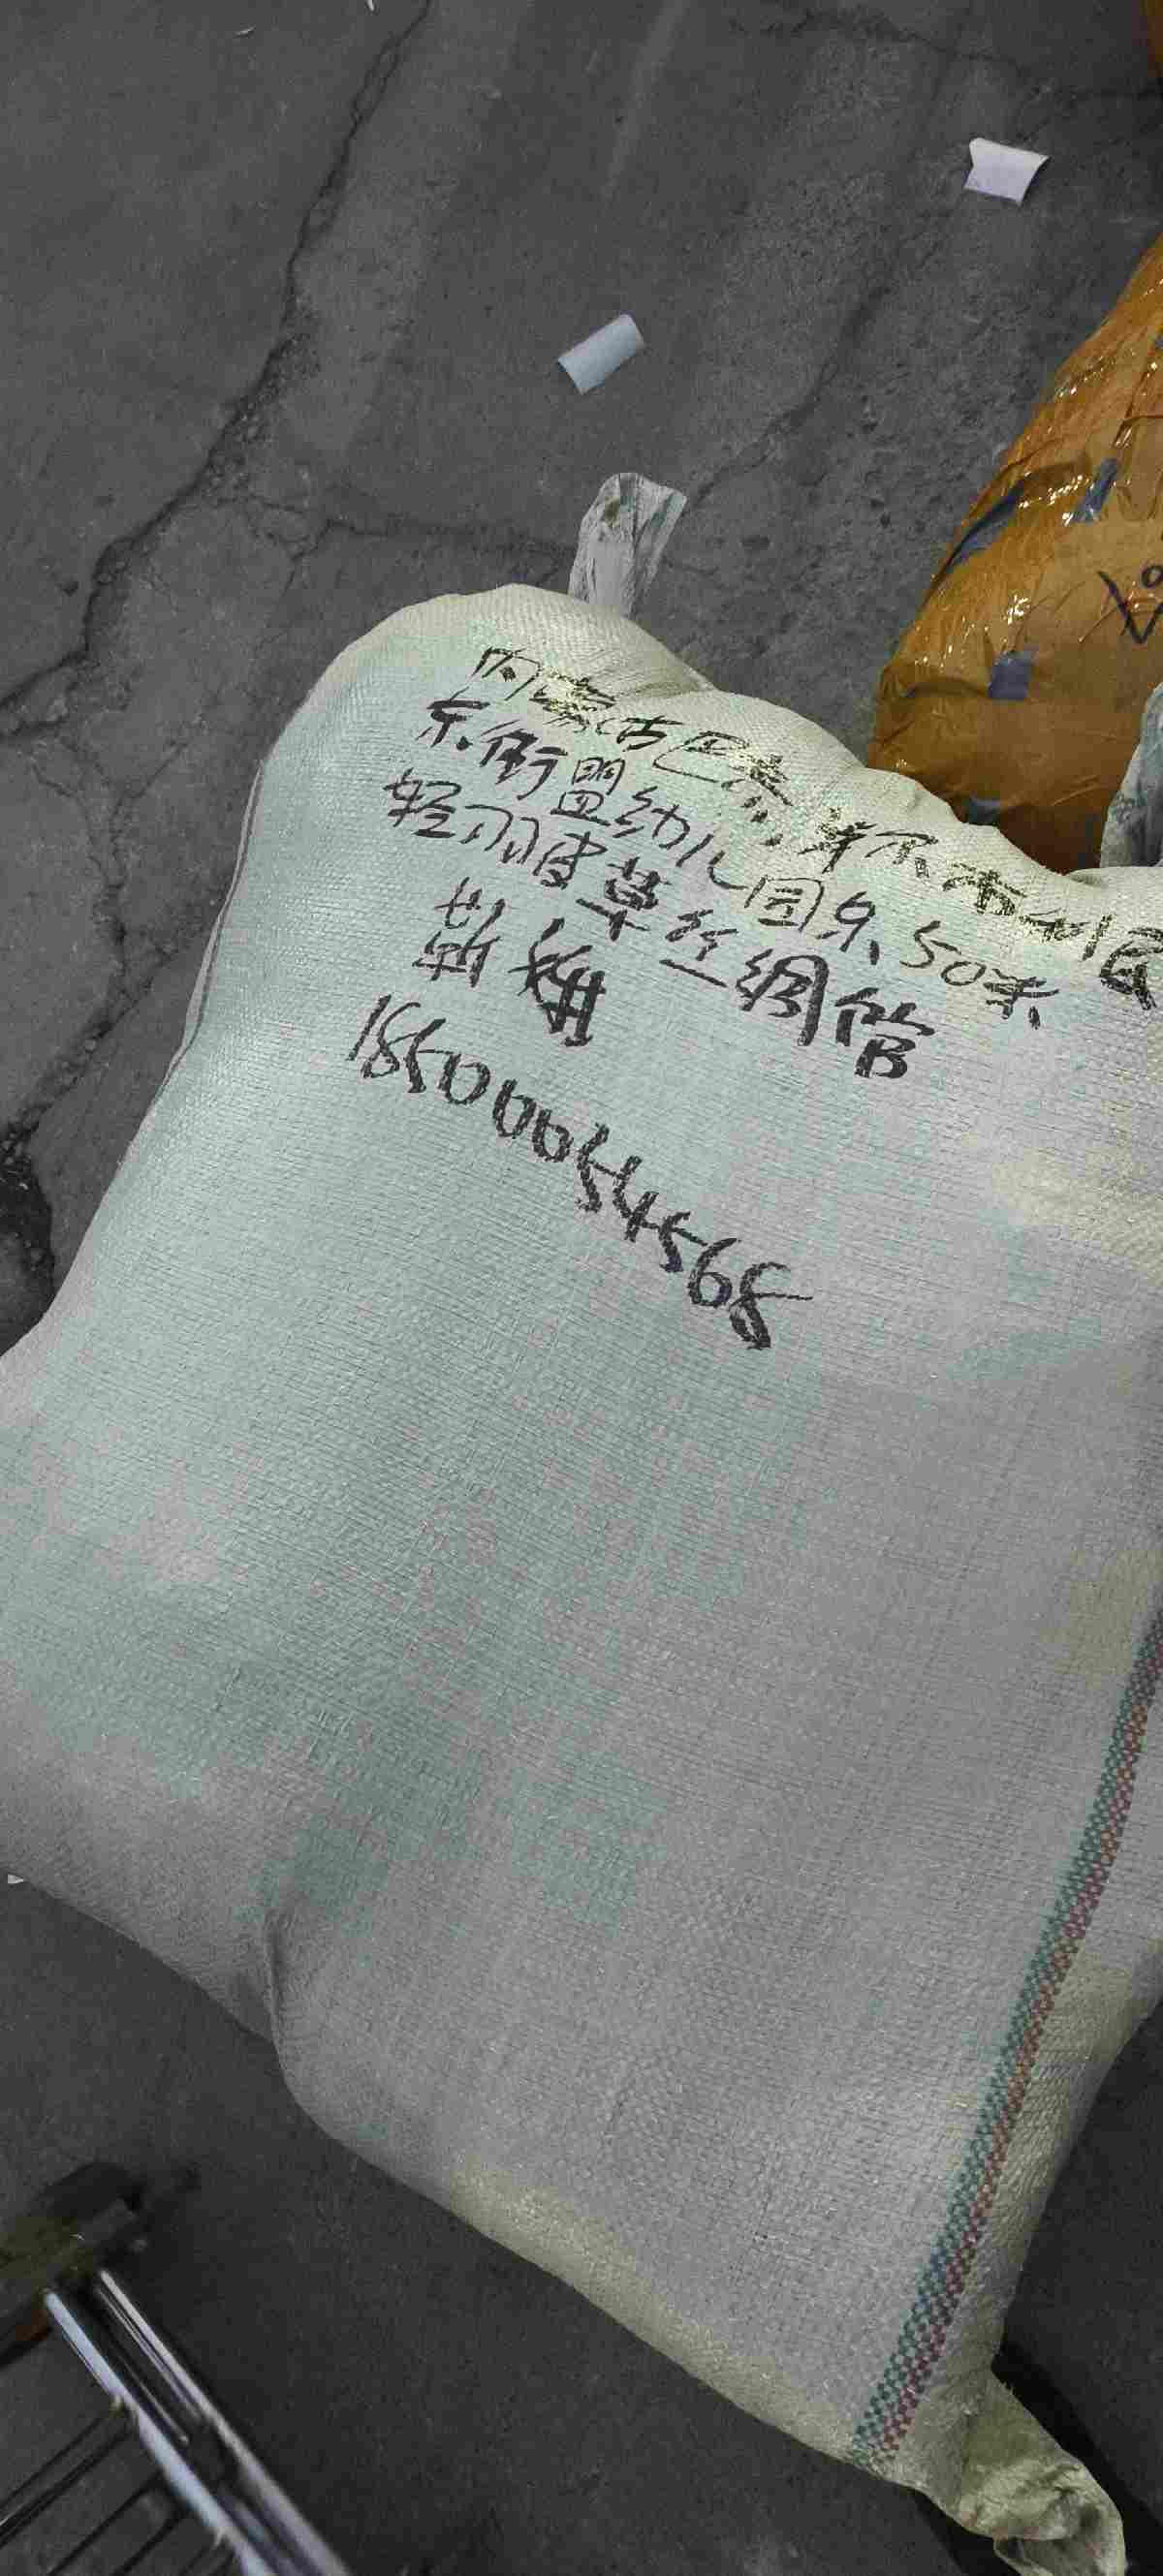 内蒙古巴彦淖尔市利民
东街盟幼儿园东50米
轻羽皮草丝绸馆
靳雅
18500054568